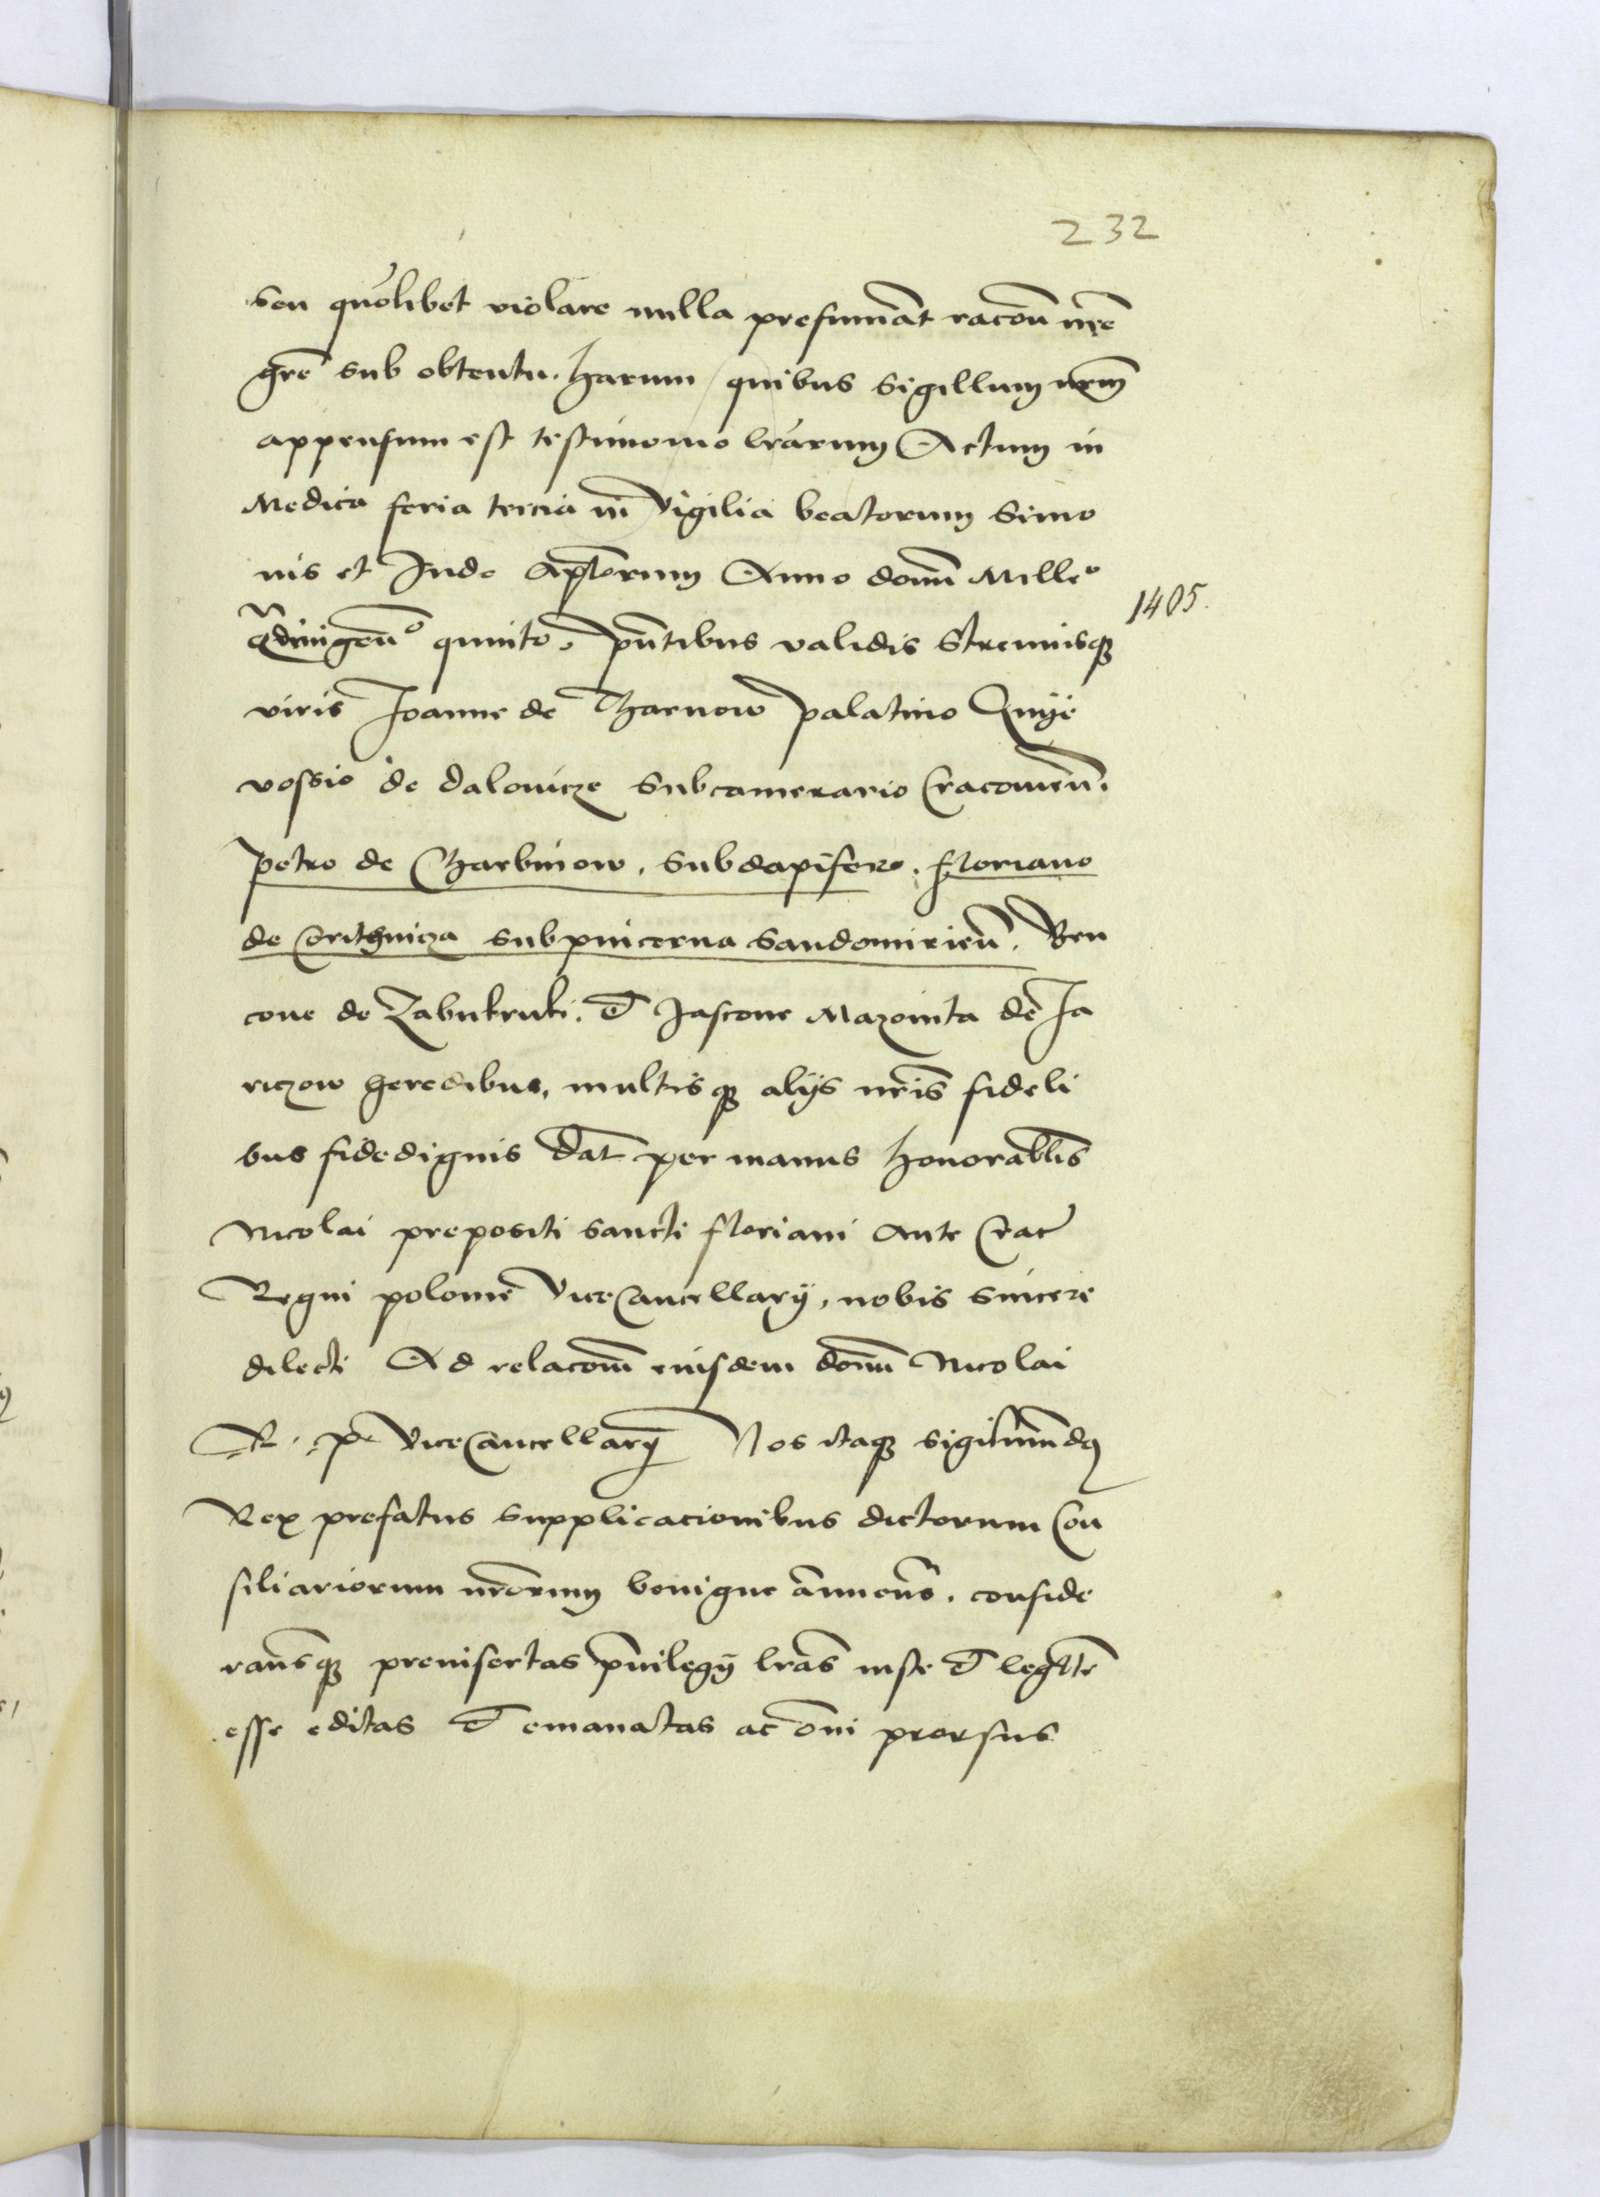 232
seu quolibet violare nulla presumat racōn nrē
grē sub obtentu. Harum quibus sigillum nrm̄
appensum est testimonio lrarum Actum in
Medica feria tercia in vigilia beatorum Simo
nis et Iude Apl̄orum Anno domī Milleo
Qdringēno quinto. pn̄tibus validis Strenuisqꝫ
1405.
viris Joanne de Tharnow palatino Gnye
vossio de dalouicze Subcamerario Cracouień.
petro de Charbinow. Subdapifero. floriano
de Corithnicza subpincerna Sandomirień. Ben
cone de Zabukruki. et Jascone Mazouita de Ja
riczow heredibus, multisqꝫ alijs nrīs fideli
bus fidedignis Dat̄ per manus honorabl̄is
Nicolai prepositi sancti floriani ante Crac̄
Regni polonie ViceCancellarij, nobis sincere
dilecti Ad relacōm eiusdem domī Nicolai
R. p. ViceCancellarij Nos itaqꝫ Sigismundꝰ
Rex prefatus supplicacionibus dictorum Con
siliariorum nrōrum benigne annuens. conside
ransqꝫ preinsertas pn̄ilegij lrās iuste et legitte
esse editas et emanatas ac om̄i prorsus